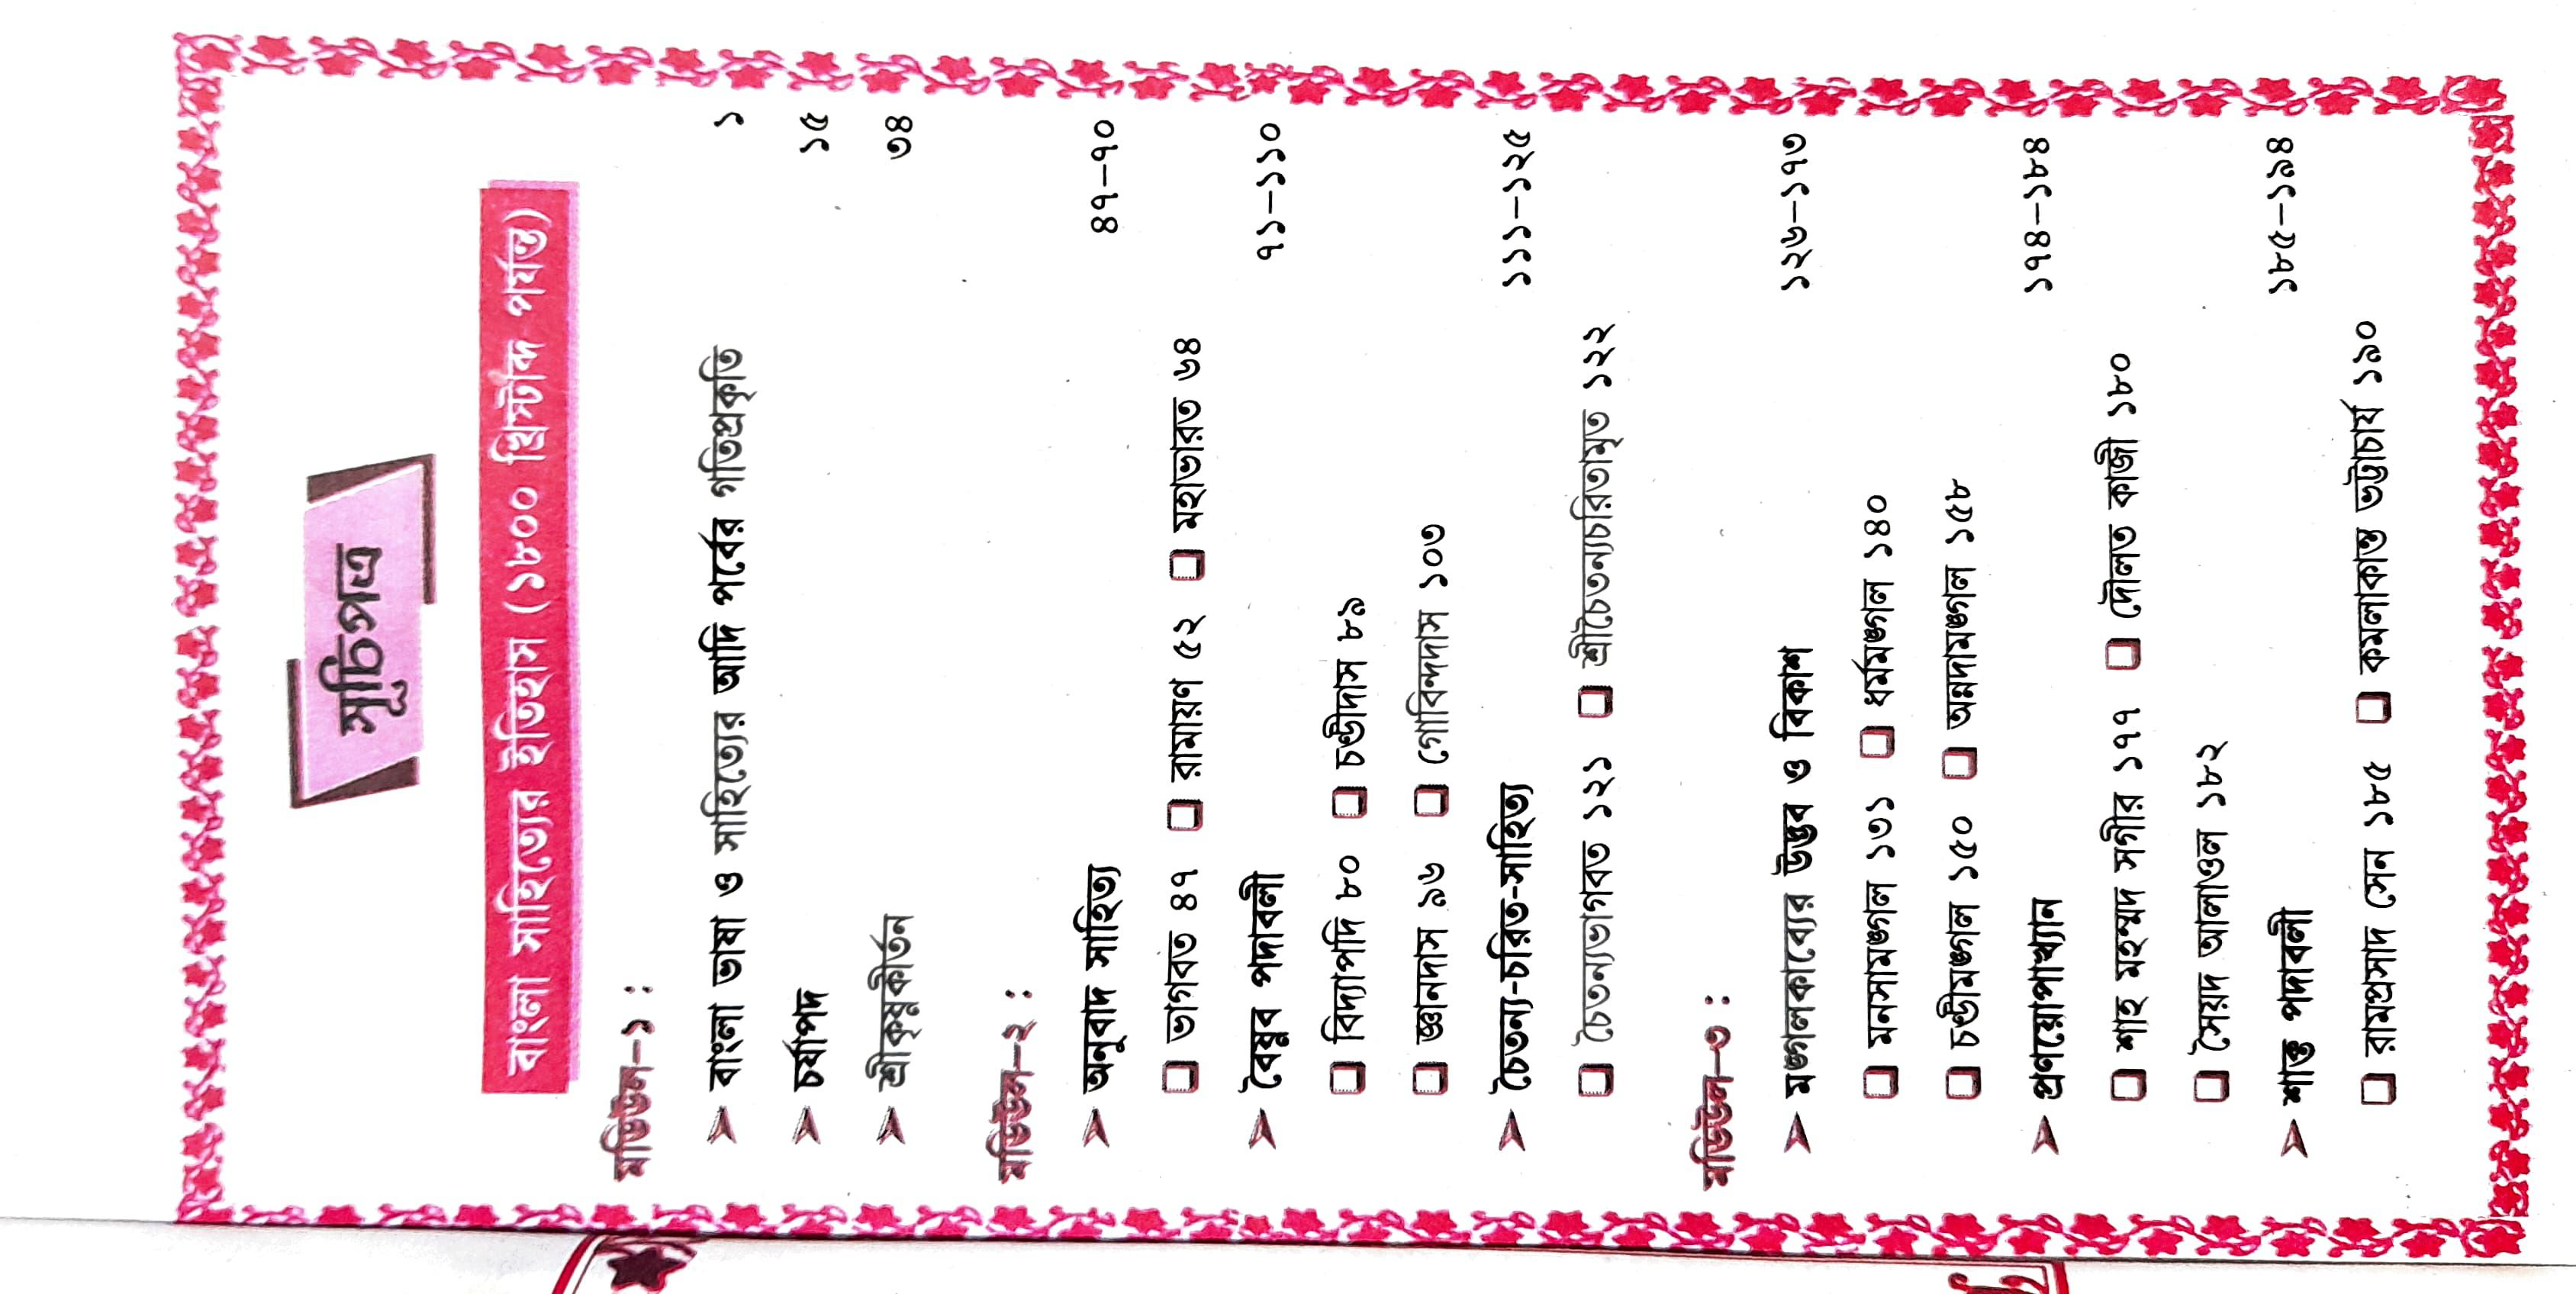 সূচিপত্র
বাংলা সাহিত্যের ইতিহাস (১৮০০ খ্রিস্টাব্দ পর্যন্ত)
মডিউল–১ :
➢ বাংলা ভাষা ও সাহিত্যের আদি পর্বের গতিপ্রকৃতি ১
➢ চর্যাপদ ১৫
➢ শ্রীকৃষ্ণকীর্তন ৩৪
মডিউল–২ :
➢ অনুবাদ সাহিত্য ৪৭–৭০
❑ ভাগবত ৪৭ ❑ রামায়ণ ৫২ ❑ মহাভারত ৬৪
➢ বৈষ্ণব পদাবলী ৭১–১১০
❑ বিদ্যাপদি ৮০ ❑ চণ্ডীদাস ৮৯
❑ জ্ঞানদাস ৯৬ ❑ গোবিন্দদাস ১০৩
➢ চৈতন্য-চরিত-সাহিত্য ১১১–১২৫
❑ চৈতন্যভাগবত ১২১ ❑ শ্রীচৈতন্যচরিতামৃত ১২২
মডিউল–৩ :
➢ মঙ্গলকাব্যের উদ্ভব ও বিকাশ ১২৬–১৭৩
❑ মনসামঙ্গল ১৩১ ❑ ধর্মমঙ্গল ১৪০
❑ চণ্ডীমঙ্গল ১৫০ ❑ অন্নদামঙ্গল ১৫৮
➢ প্রণয়োপাখ্যান ১৭৪–১৮৪
❑ শাহ মহম্মদ সগীর ১৭৭ ❑ দৌলত কাজী ১৮০
❑ সৈয়দ আলাওল ১৮২
➢ শাক্ত পদাবলী ১৮৫–১৯৪
❑ রামপ্রসাদ সেন ১৮৫ ❑ কমলাকান্ত ভট্টাচার্য ১৯০